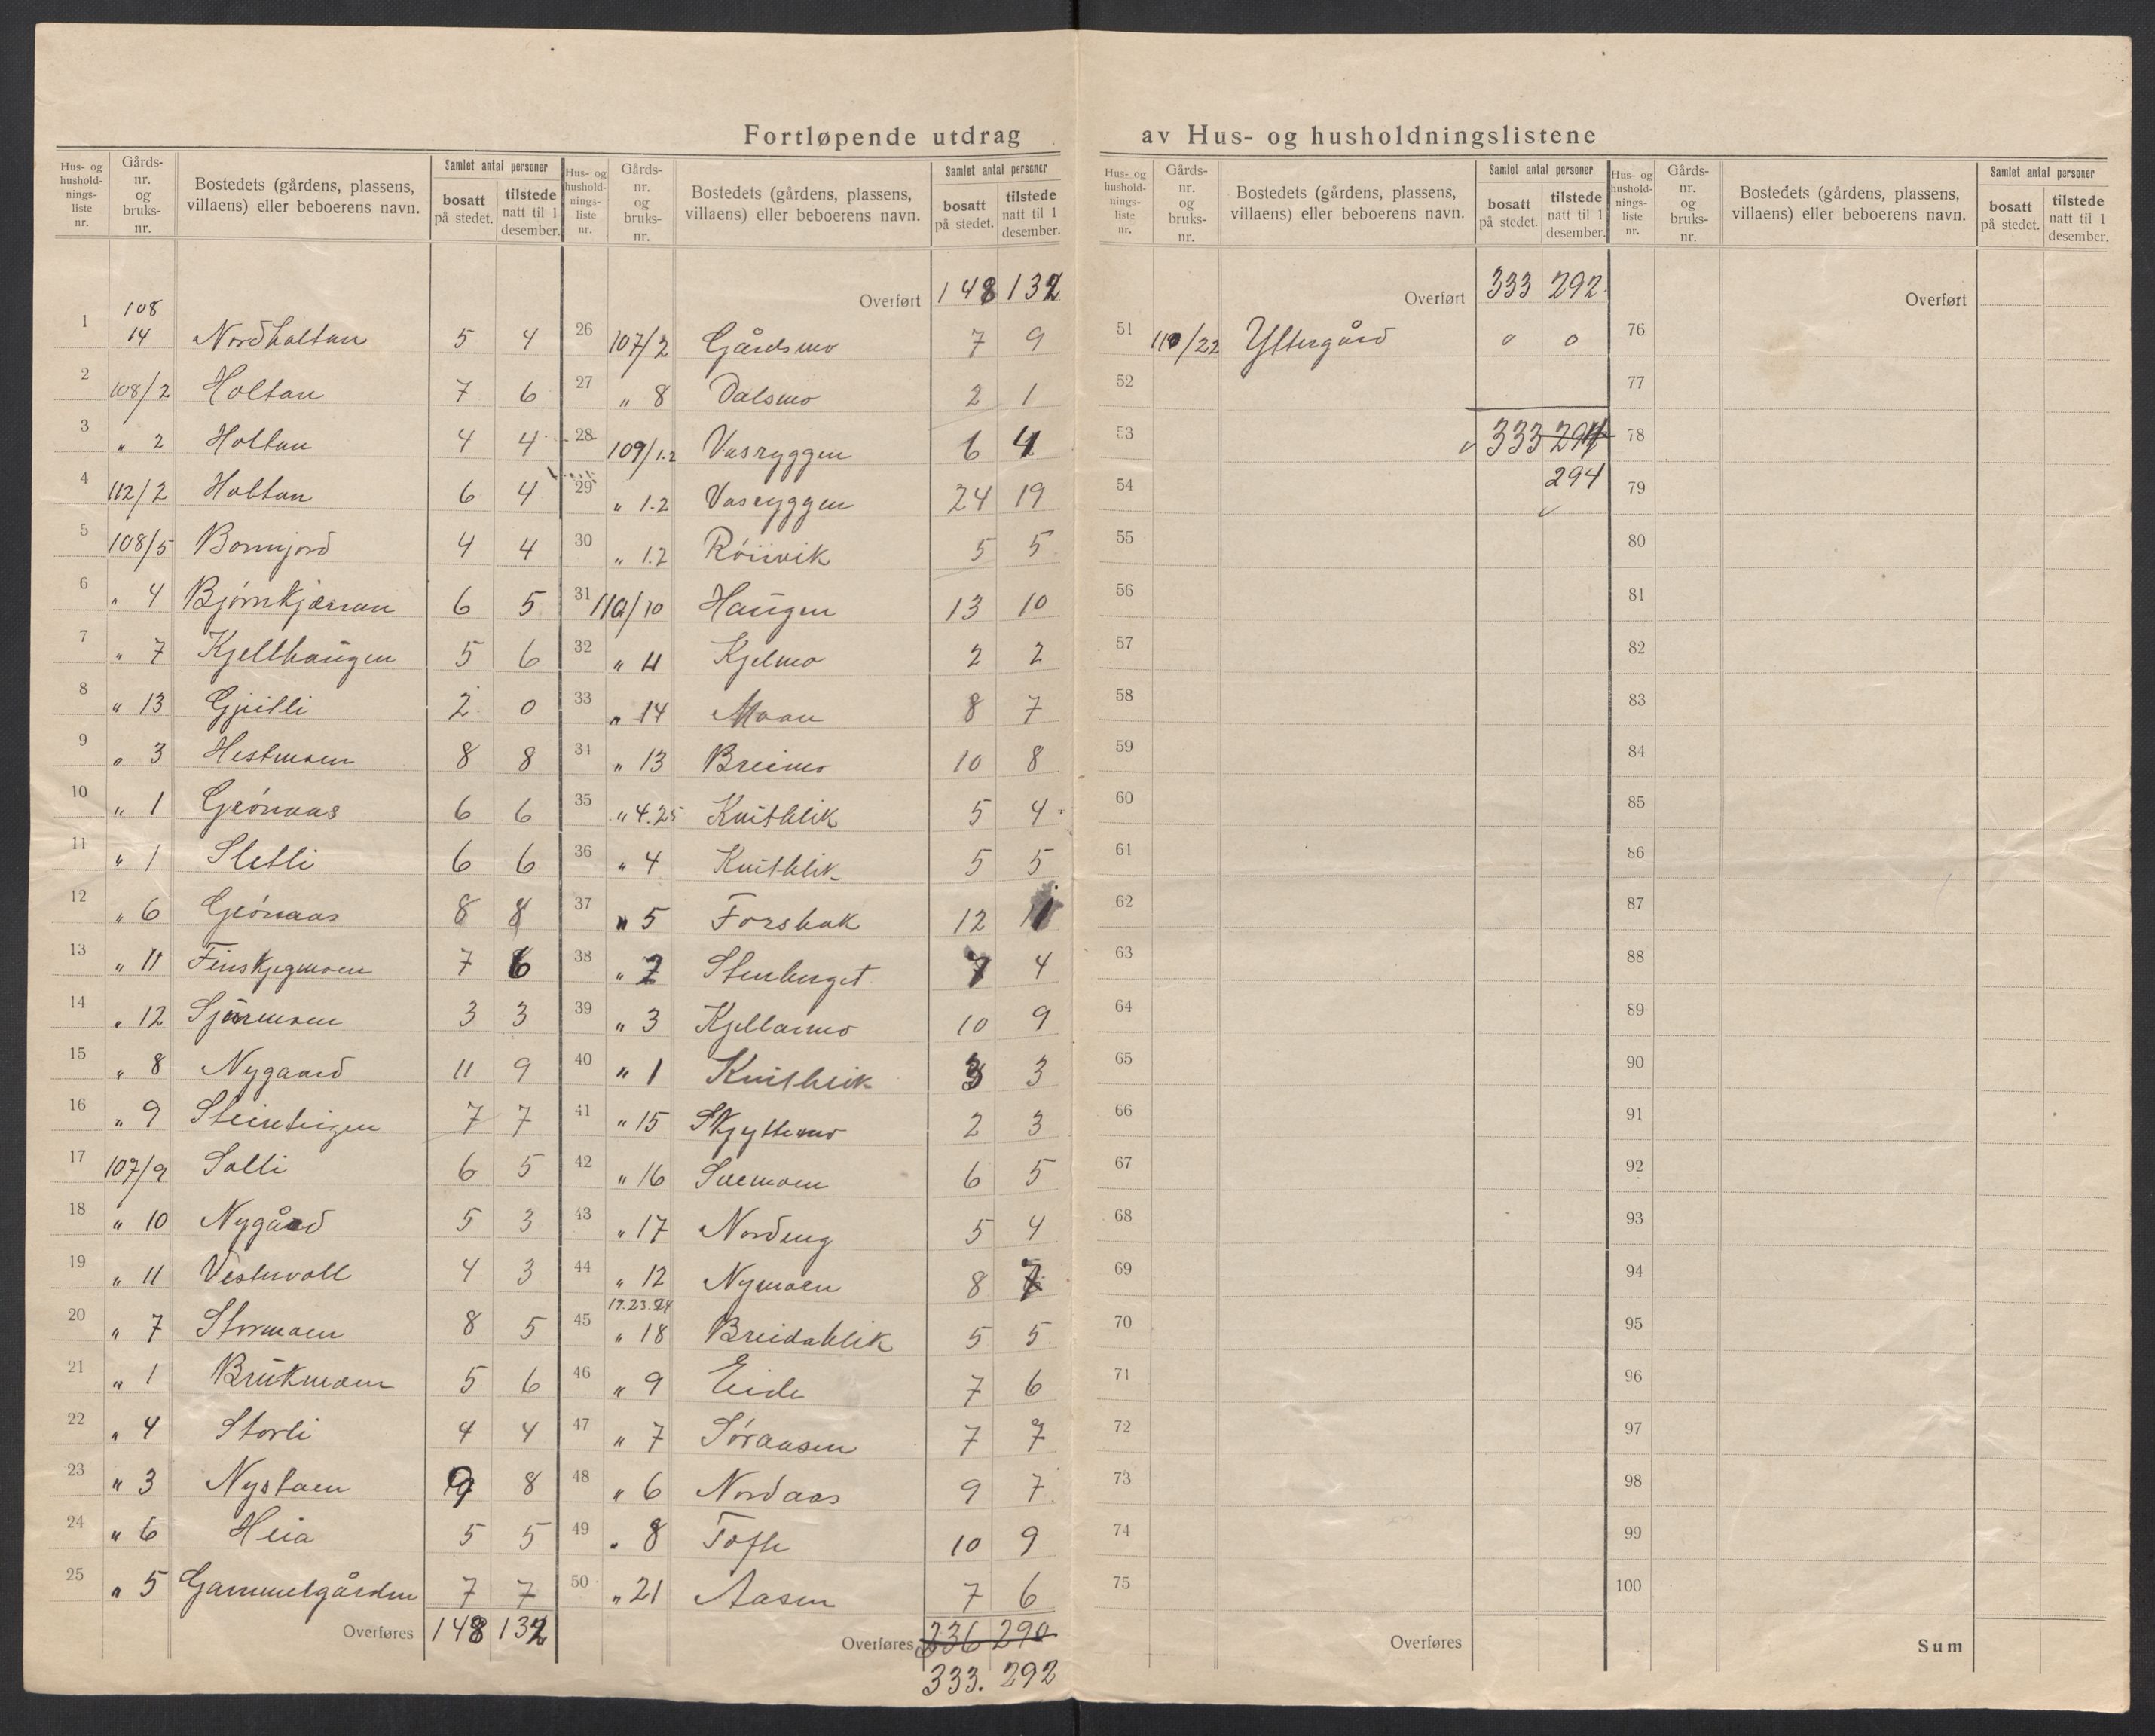 Fortløpende utdrag av Hus- og husholdningslistene
Hus- og husholdnings-liste nr. Gårds-nr. og bruks-nr. Bostedets (gårdens, plassens, villaens) eller beboerens navn. Samlet antal personer bosatt på stedet. tilstede natt til 1 desember.
1 108 14 Nordholtan 5 4
2 108/2 Holtan 7 6
3 " 2 Holtan 4 4
4 112/2 Holtan 6 4
5 108/5 Bornjord 4 4
6 " 4 Bjørnkjærran 6 5
7 " 7 Kjellhaugen 5 6
8 " 13 2 0
9 " 3 Hestmoen 8 8
10 " 1 Grónaas 6 6
11 " 1 Sletli 6 6
12 " 6 Grónaas 8 8
13 " 11 Finskjegmoen 7 6
14 " 12 3 3
15 " 8 Nygaard 11 9
16 " 9 Steinteigen 7 7
17 107/9 Solli 6 5
18 " 10 Nygård 5 3
19 " 11 Vestervoll 4 3
20 " 7 Stormoen 8 5
21 " 1 Brukmoen 5 6
22 " 4 Storli 4 4
23 " 3 Nystuen 9 8
24 " 6 Heia 5 5
25 " 5 Gammelgården 7 7
Overføres 148 132
Hus- og husholdnings-liste nr. Gårds-nr. og bruks-nr. Bostedets (gårdens, plassens, villaens) eller beboerens navn. Samlet antal personer bosatt på stedet. tilstede natt til 1 desember.
Overført 148 132
26 107/2 Gårdsmo 7 9
27 " 8 Dalsmo 2 1
28 109/1.2 Vasryggen 6 4
29 " 1.2 Vasryggen 24 19
30 " 1.2 Röiivik 5 5
31 110/10 Haugen 13 10
32 " 11 Kjelmo 2 2
33 " 14 Moan 8 7
34 " 13 Breimo 10 8
35 " 4.25 Kvitblik 5 4
36 " 4 Kvitblik 5 5
37 " 5 Forsbak 12 11
38 " 2 Stenberget 7 4
39 " 3 Kjellarmo 10 9
40 " 1 Kvitblik 3 3
41 " 15 Skyttermo 2 3
42 " 16 Svemoen 6 5
43 " 17 Nordeng 5 4
44 " 12 Nymoen 8 7
19.23.24
45 " 18 Breidablik 5 5
46 " 9 Eide 7 6
47 " 7 Søraasen 7 7
48 " 6 Nordaas 9 7
49 " 8 Tofte 10 9
50 " 21 Aasen 7 6
Overføres 336 290
333. 292
Hus- og husholdnings-liste nr. Gårds-nr. og bruks-nr. Bostedets (gårdens, plassens, villaens) eller beboerens navn. Samlet antal personer bosatt på stedet. tilstede natt til 1 desember.
Overført 333 292
51 110/22 Yttergård 0 0
52
53 333 294
54 294
55
56
57
58
59
60
61
62
63
64
65
66
67
68
69
70
71
72
73
74
75
Overføres
Hus- og husholdnings-liste nr. Gårds-nr. og bruks-nr. Bostedets (gårdens, plassens, villaens) eller beboerens navn. Samlet antal personer bosatt på stedet. tilstede natt til 1 desember.
Overført
76
77
78
79
80
81
82
83
84
85
86
87
88
89
90
91
92
93
94
95
96
97
98
99
100
Sum